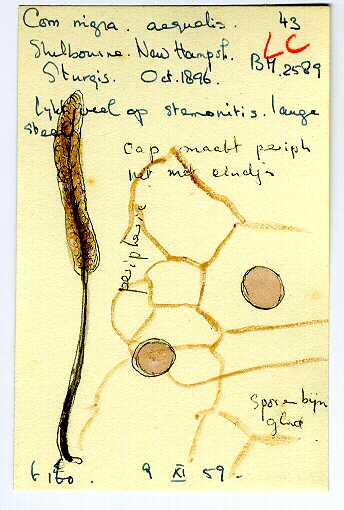 Com nigra. aequalis. 43
LC
Shelbourne. New Hampsh. BM. 2589
Sturgis. Oct. 1896.
Lijkt veel op stemonitis. lange
steel
Cap maakt periph
net met eindjes
peripherie
Sporen bijna
glad.
6 160. 9 XI 59.